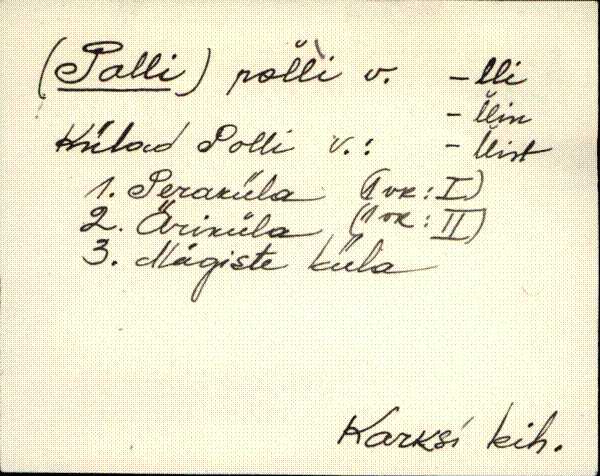 (Polli) pol̀li v. -l̀li
-l̀lin
Külad Polli v.: -l̀list
1. Peraküla (1 vk: I)
2. Äriküla (1 vk: II)
3. Mägiste küla
Karksi kih.